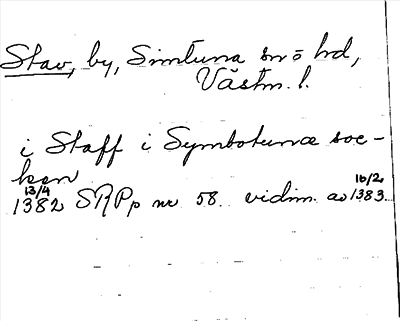 Stav, by, Simtuna sn o hd,
Västm. l.
i Staff i Symbotuna soc-
ken
13/4 16/2
1382 SRPp nr 58. vidim. av 1383.